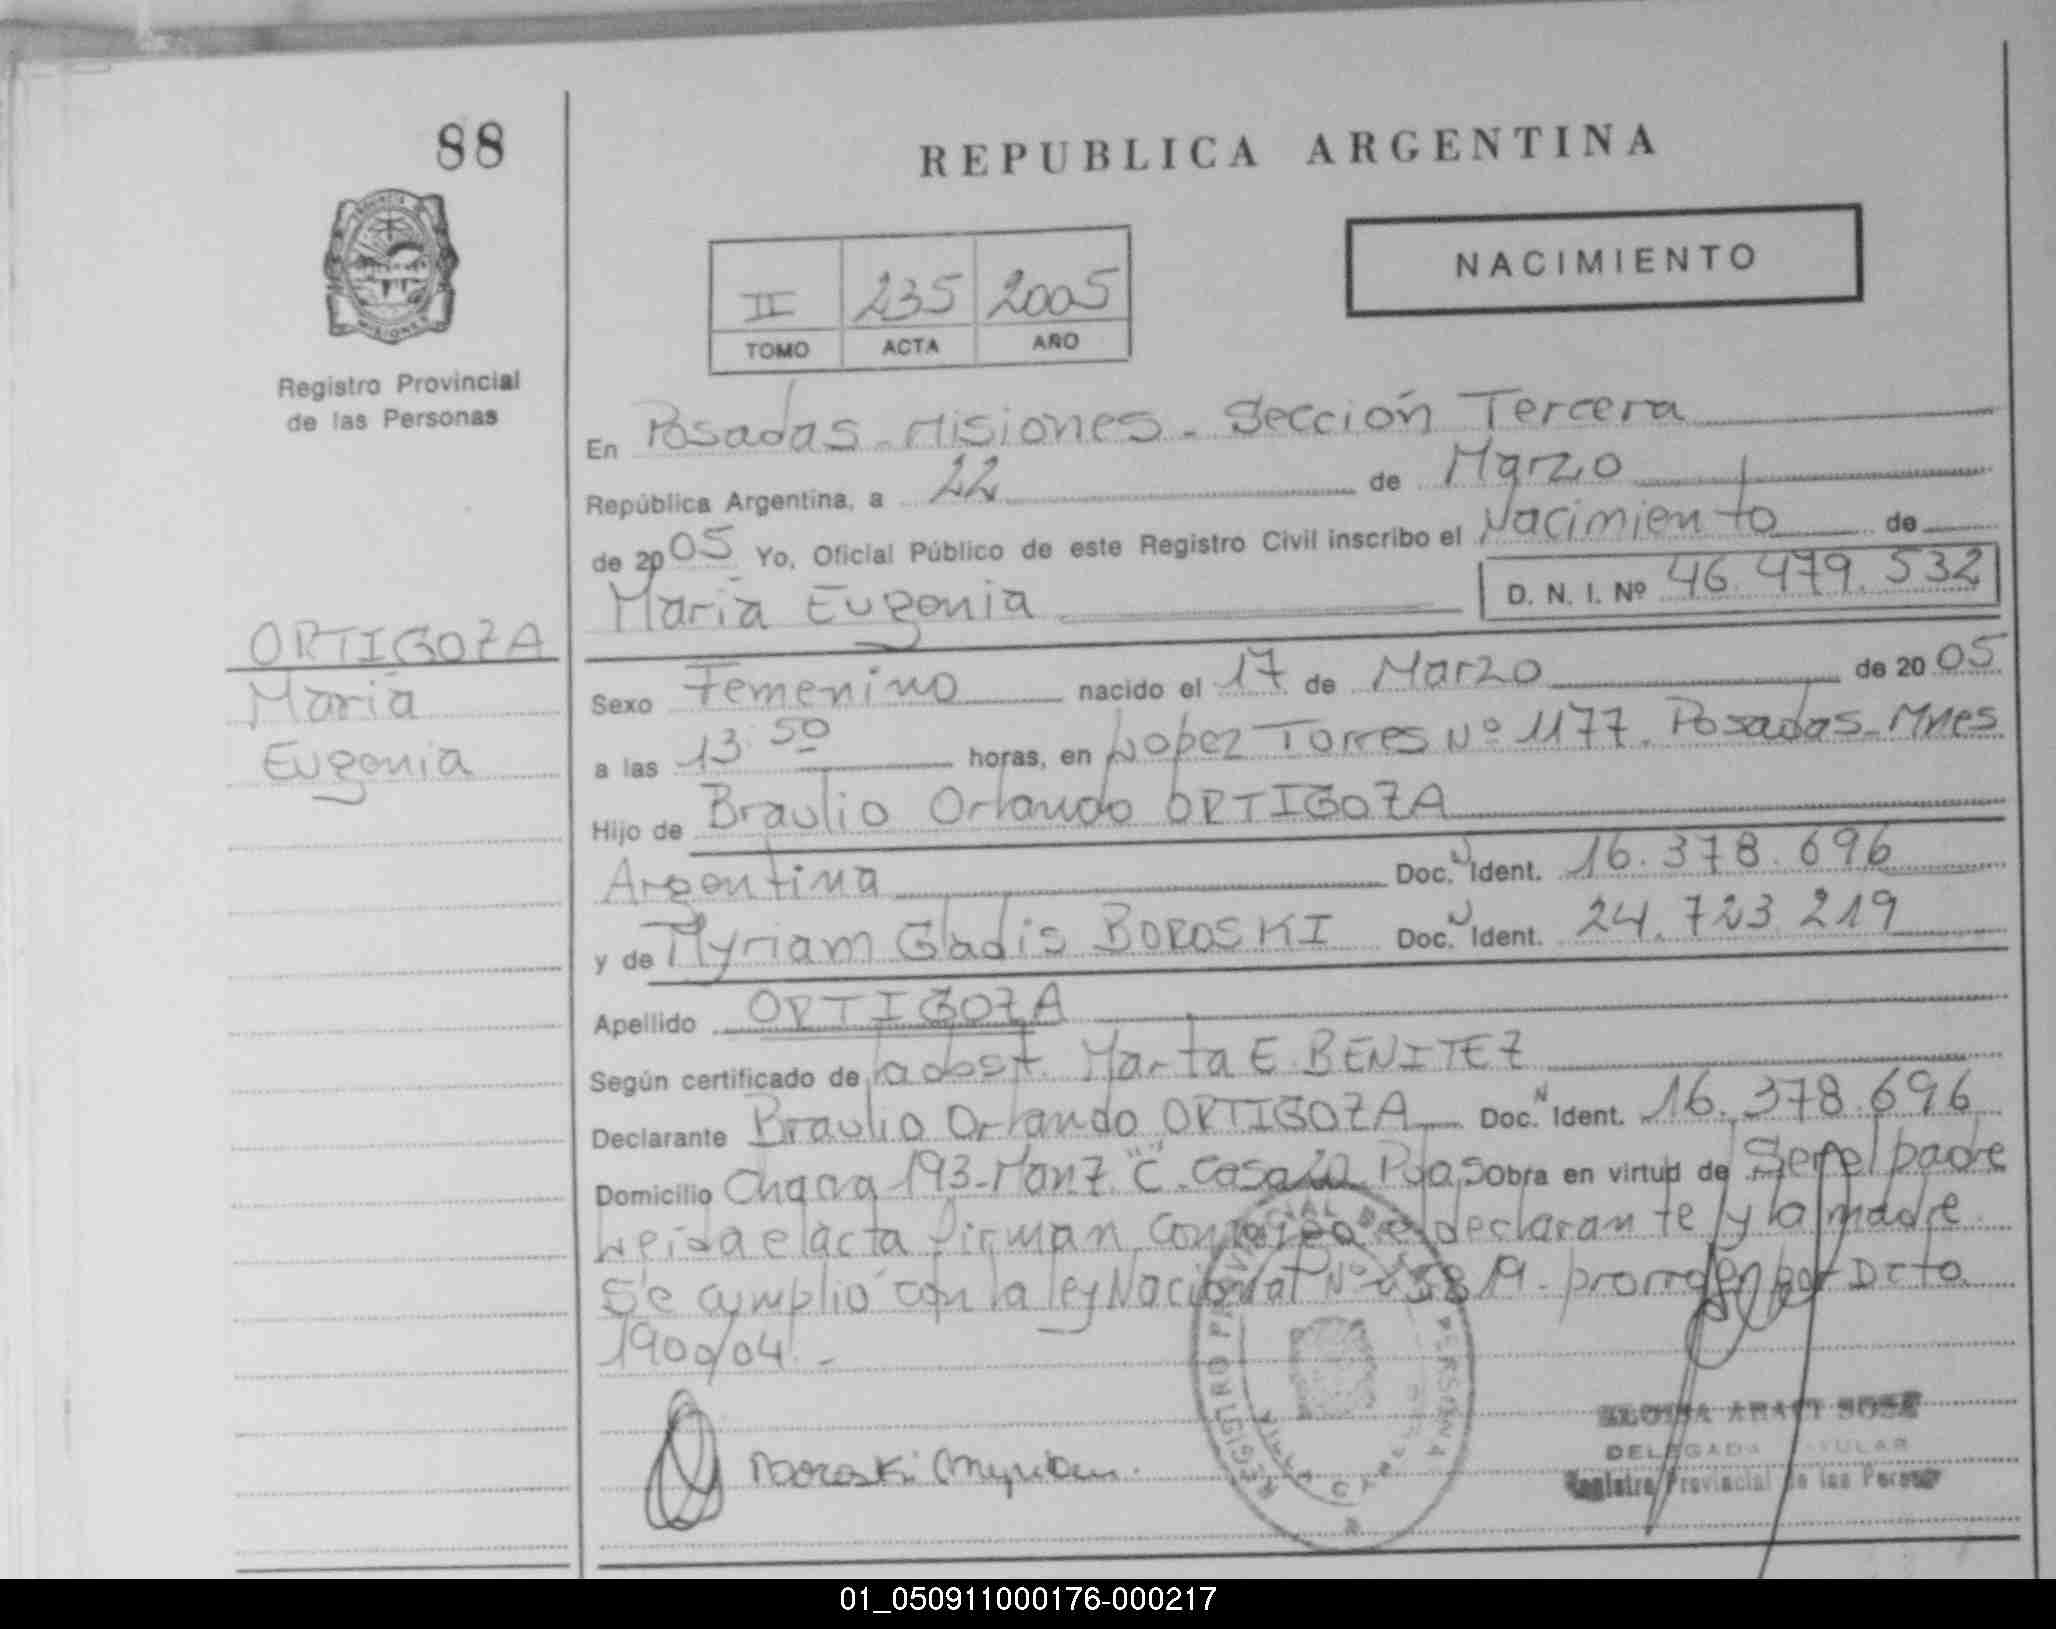 88
REPUBLICA ARGENTINA
PROVINCIA
MISIONES
Registro Provincial
de las Personas
NACIMIENTO
II 235 2005
TOMO ACTA AÑO
En Posadas - Misiones - Sección Tercera
República Argentina, a 22 de Marzo
de 2005 Yo, Oficial Público de este Registro Civil inscribo el Nacimiento de
María Eugenia D. N. I. Nº 46.479.532
ORTIGOZA
María
Eugenia
Sexo Femenino nacido el 17 de Marzo de 2005
a las 13:50 horas, en Lopez Torres Nº 1177. Posadas - Mnes
Hijo de Braulio Orlando ORTIGOZA
Argentina Doc. N Ident. 16.378.696
y de Myriam Gladis BOROSKI Doc. N Ident. 24.723.219
Apellido ORTIGOZA
Según certificado de la obst. Marta E. BENITEZ
Declarante Braulio Orlando ORTIGOZA Doc. N Ident. 16.378.696
Domicilio Chacra 193 - Manz. "C" - Casa Pdas Obra en virtud de Ser el padre
Leida el acta firman el declarante y la madre
Se cumplió con la ley Nacional Nº por Dcto
1900/04. -
Boroski Myriam.
REGISTRO PROVINCIAL DE
DELEGADA TITULAR
Registro Provincial de las Personas
01_050911000176-000217